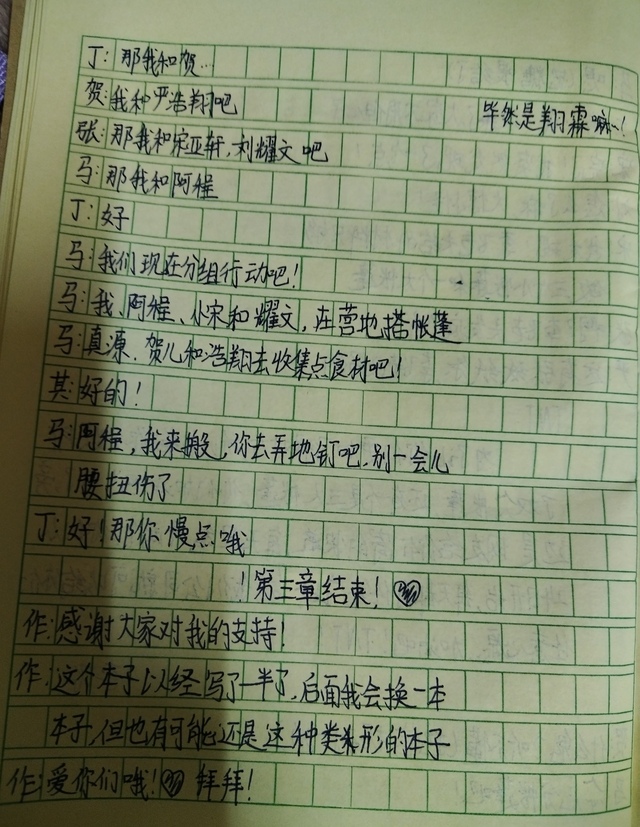 丁:那我和贺…
贺:我和严浩翔吧
毕然是翔霖嘛~!
张:那我和宋亚轩,刘耀文吧
马:那我和阿程
丁:好
马:我们现在分组行动吧!
马:我、阿程、小宋和耀文,在营地搭帐蓬
马:真源、贺儿和浩翔去收集点食材吧!
其:好的!
马:阿程,我来搬,你去弄地钉吧,别一会儿
腰扭伤了
丁:好!那你慢点哦
!第三章结束!
作:感谢大家对我的支持!
作:这个本子以经写了一半了,后面我会换一本
本子,但也有可能还是这种类形的本子
作:爱你们哦! 拜拜!